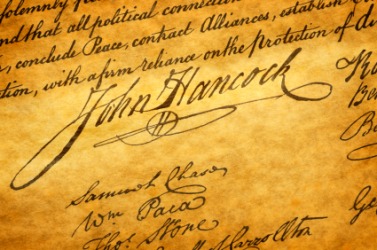 solemnly
nd that all political connection
, conclude Peace, contract Alliances, establish
tion, with a firm reliance on the Protection of di
John Hancock
Samuel Chase
Wm Paca
Thos Stone
Carrollton
Ro
Ben
Be
Ge